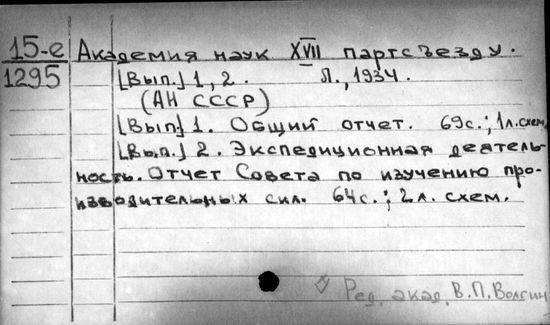 15-е
1295
Академия наук XVII партсъезду.
[Вып.] 1, 2. Л., 1934.
(АН СССР)
[Вып.] 1. Общий отчет. 69с.; 1л.схем
[Вып.] 2. Экспедиционная деятель-
ность. Отчет Совета по изучению про-
изводительных сил. 64с.; 2л. схем.
Ред. акад. В.П.Волгин